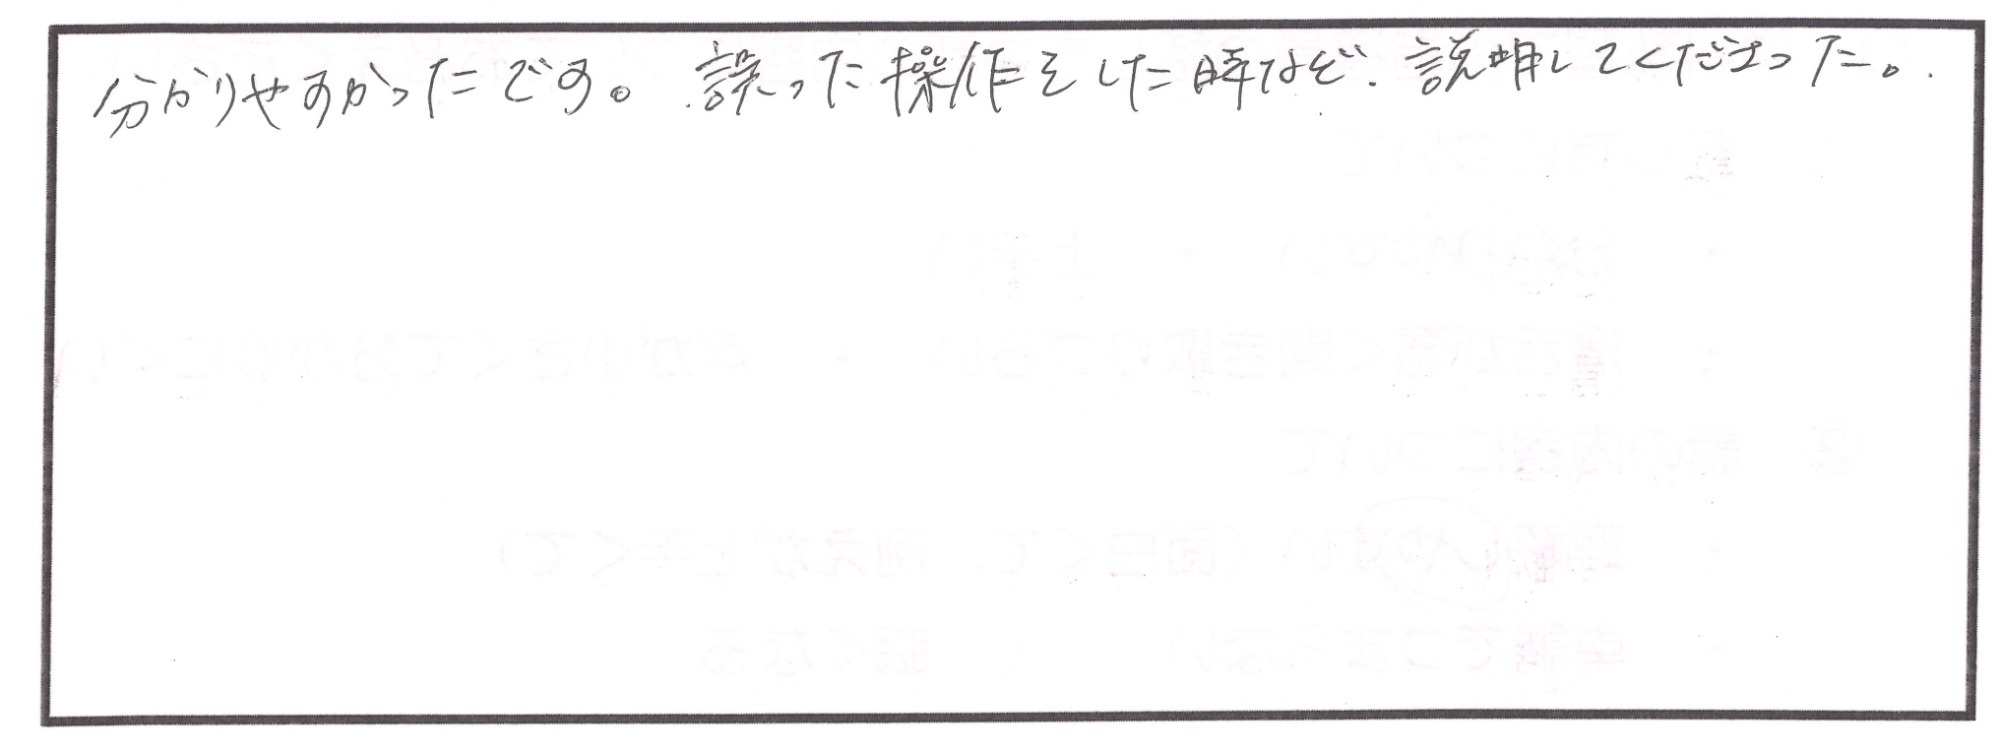 分かりやすかったです。誤った操作をした時など、説明してくださった。